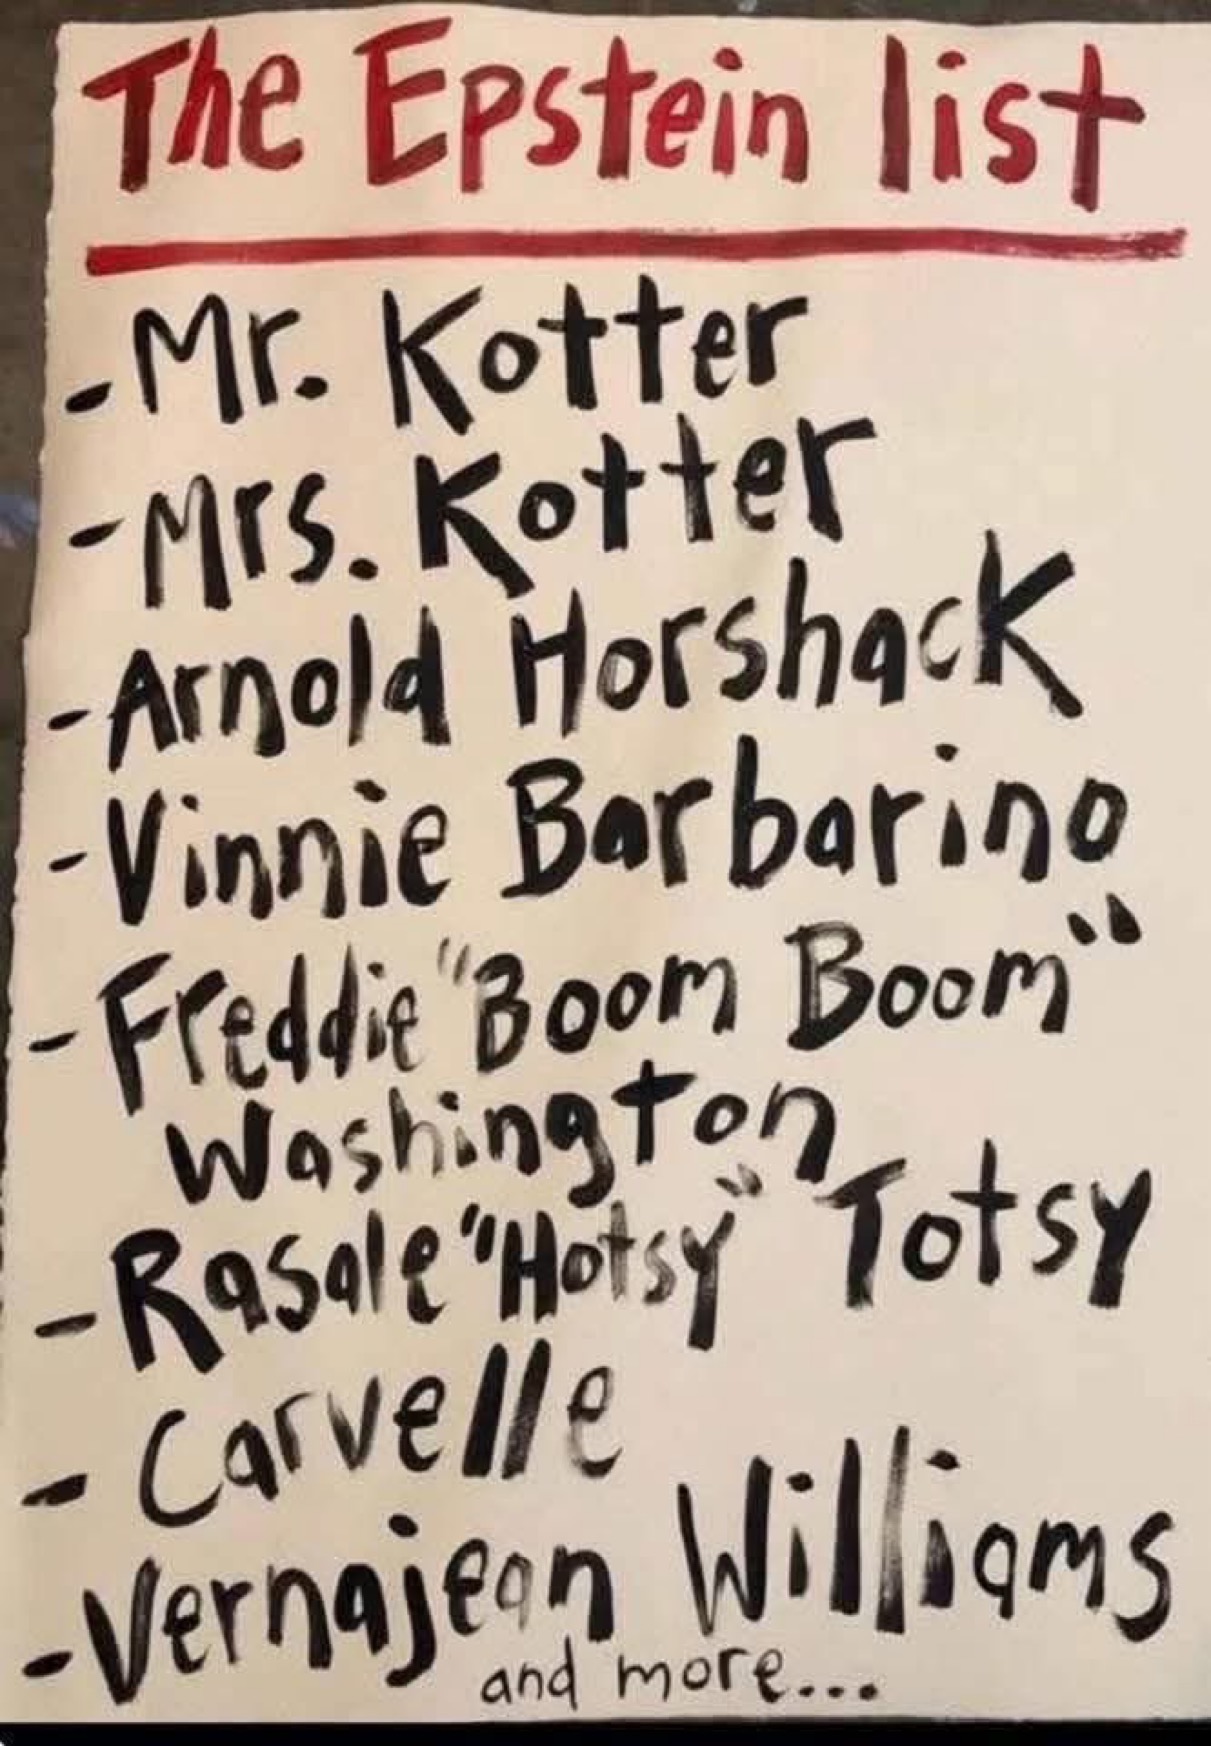 The Epstein list
- Mr. Kotter
- Mrs. Kotter
- Arnold Horshack
- Vinnie Barbarino
- Freddie "Boom Boom"
Washington
- Rasale "Hotsy" Totsy
- Carvelle
- Vernajean Williams
and more...